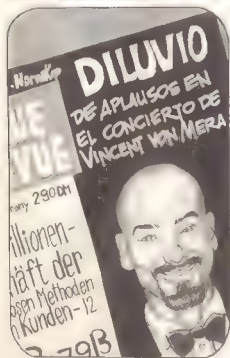 DILUVIO
DE APLAUSOS EN
EL CONCIERTO DE
VINCENT VON MERA
UE
VUE
290 DM
illionen-
häft der
Methoden
Kunden-12